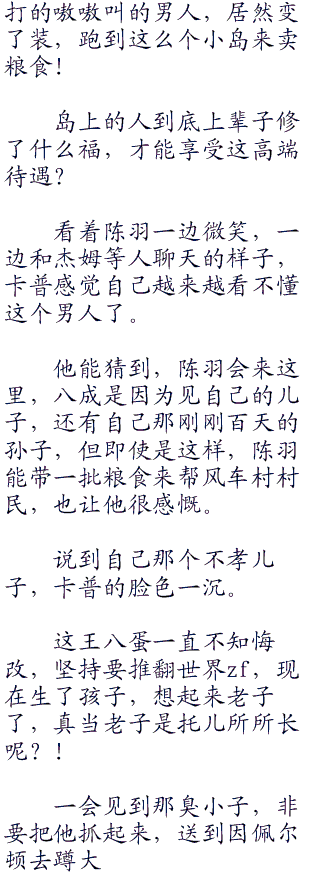 打的嗷嗷叫的男人，居然变
了装，跑到这么个小岛来卖
粮食！
岛上的人到底上辈子修
了什么福，才能享受这高端
待遇？
看着陈羽一边微笑，一
边和杰姆等人聊天的样子，
卡普感觉自己越来越看不懂
这个男人了。
他能猜到，陈羽会来这
里，八成是因为见自己的儿
子，还有自己那刚刚百天的
孙子，但即使是这样，陈羽
能带一批粮食来帮风车村村
民，也让他很感慨。
说到自己那个不孝儿
子，卡普的脸色一沉。
这王八蛋一直不知悔
改，坚持要推翻世界zf，现
在生了孩子，想起来老子
了，真当老子是托儿所所长
呢？！
一会见到那臭小子，非
要把他抓起来，送到因佩尔
顿去蹲大